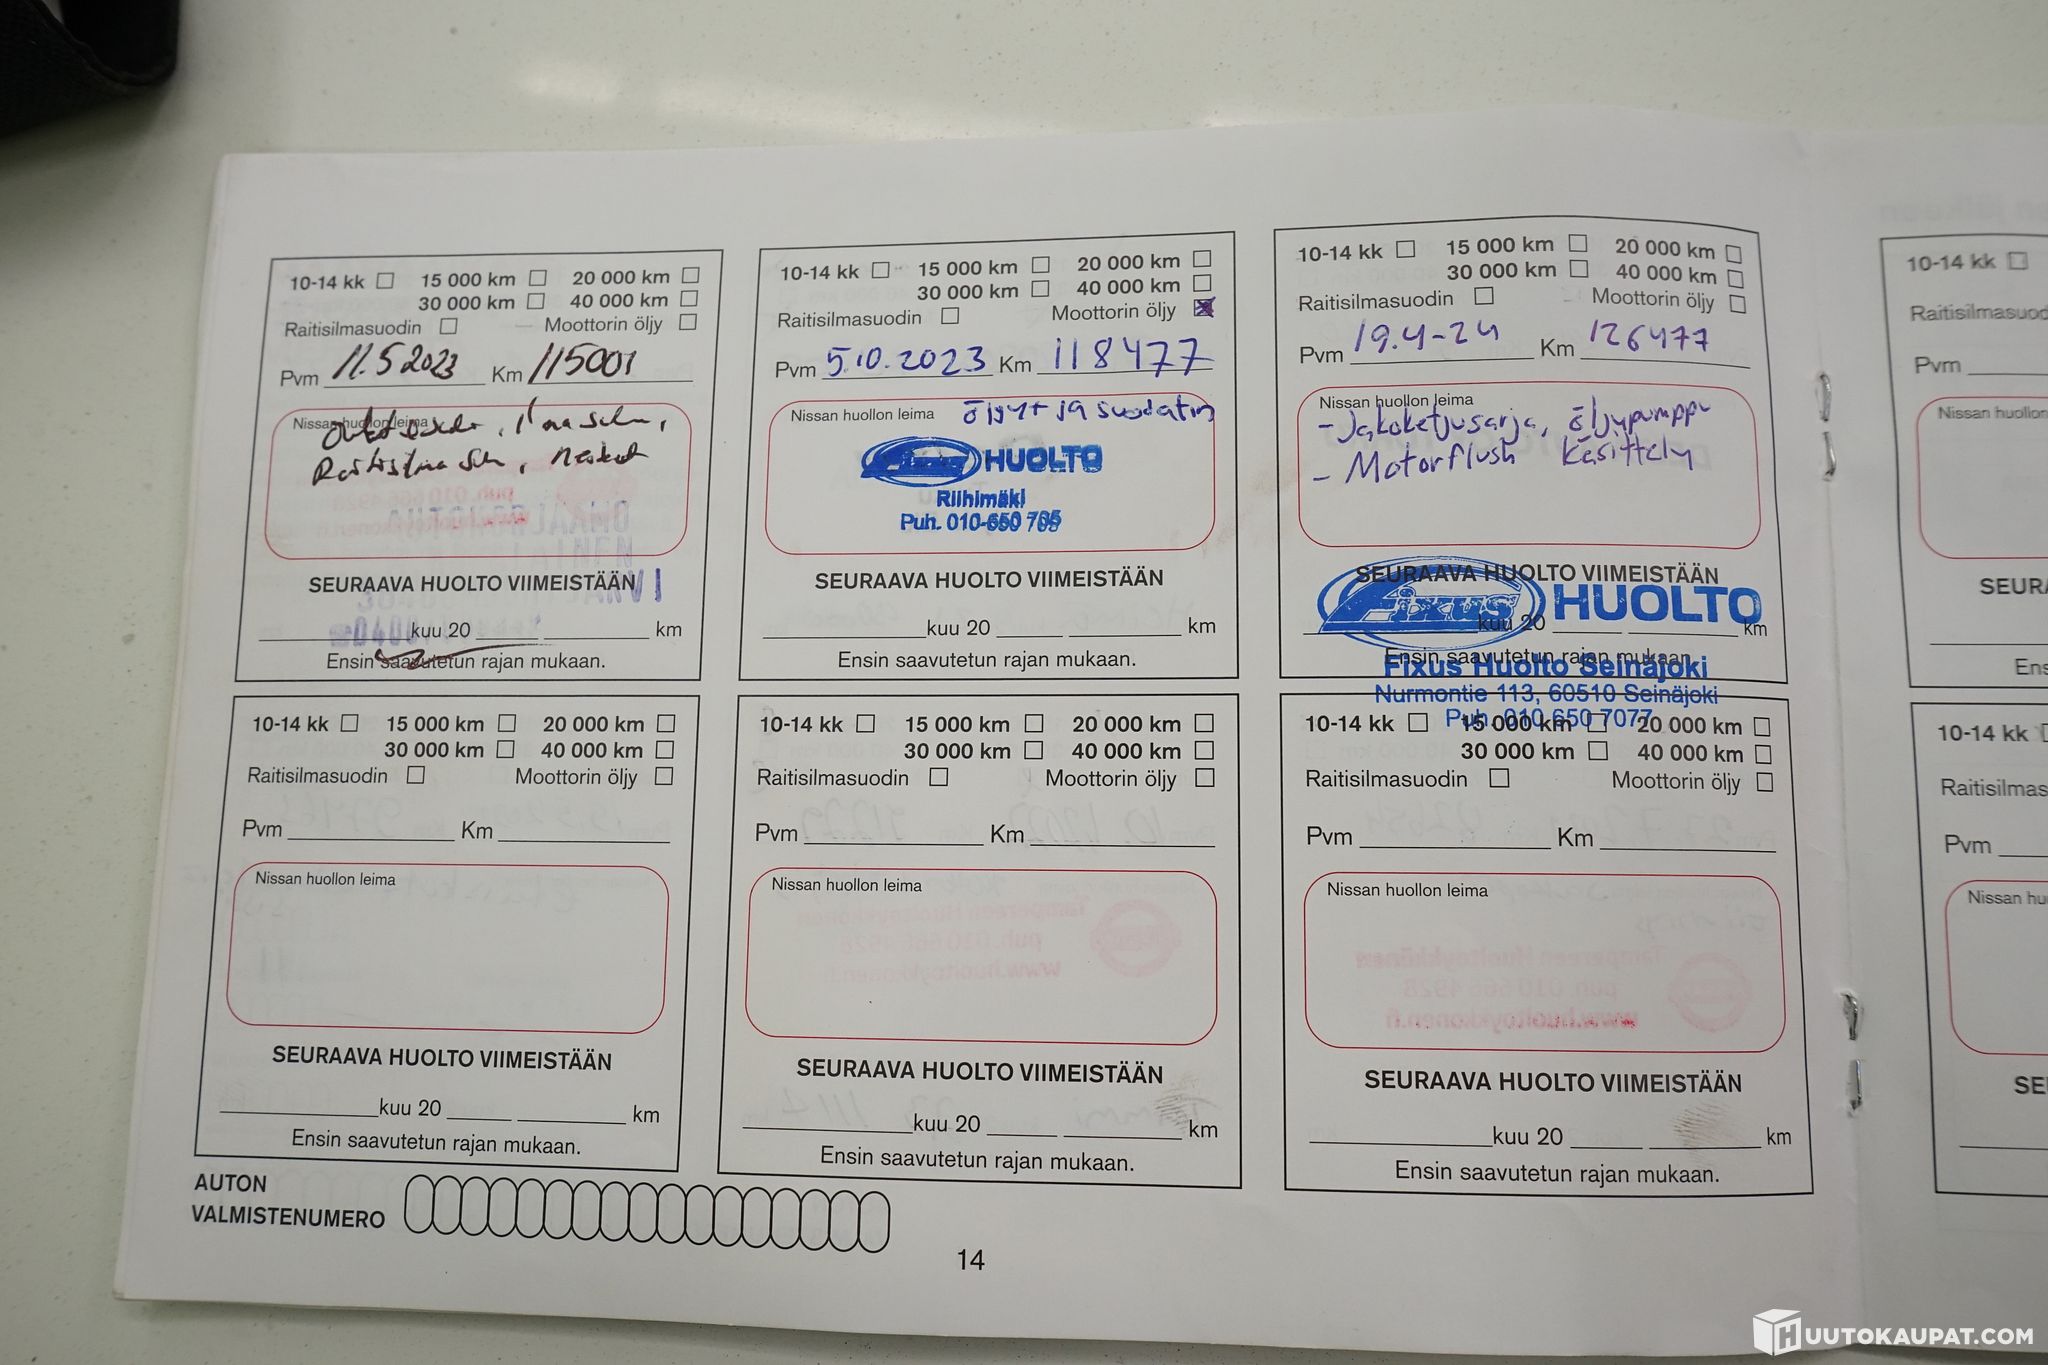 10-14 kk 15 000 km 20 000 km
30 000 km 40 000 km
Raitisilmasuodin Moottorin öljy
Pvm 11.5 2023 Km 115001
Nissan huollon leima
SEURAAVA HUOLTO VIIMEISTÄÄN
kuu 20 km
Ensin saavutetun rajan mukaan.
10-14 kk 15 000 km 20 000 km
30 000 km 40 000 km
Raitisilmasuodin Moottorin öljy
Pvm 5.10.2023 Km 118477
Nissan huollon leima öljyt ja suodatin
Fixus HUOLTO
Riihimäki
Puh. 010-650
SEURAAVA HUOLTO VIIMEISTÄÄN
kuu 20 km
Ensin saavutetun rajan mukaan.
10-14 kk 15 000 km 20 000 km
30 000 km 40 000 km
Raitisilmasuodin Moottorin öljy
Pvm 19.4-24 Km 126477
Nissan huollon leima
- Jakoketjusarja, öljypumppu
- Motorflush käsittely
SEURAAVA HUOLTO VIIMEISTÄÄN
Fixus HUOLTO
kuu 20 km
Ensin saavutetun rajan mukaan.
Fixus Huolto Seinäjoki
Nurmontie 113, 60510 Seinäjoki
Puh. 010 650 7077
10-14 kk 15 000 km 20 000 km
30 000 km 40 000 km
Raitisilmasuodin Moottorin öljy
Pvm Km
Nissan huollon leima
SEURAAVA HUOLTO VIIMEISTÄÄN
kuu 20 km
Ensin saavutetun rajan mukaan.
10-14 kk 15 000 km 20 000 km
30 000 km 40 000 km
Raitisilmasuodin Moottorin öljy
Pvm Km
Nissan huollon leima
SEURAAVA HUOLTO VIIMEISTÄÄN
kuu 20 km
Ensin saavutetun rajan mukaan.
10-14 kk 15 000 km 20 000 km
30 000 km 40 000 km
Raitisilmasuodin Moottorin öljy
Pvm Km
Nissan huollon leima
SEURAAVA HUOLTO VIIMEISTÄÄN
kuu 20 km
Ensin saavutetun rajan mukaan.
AUTON
VALMISTENUMERO
14
10-14 kk
Raitisilmasuod
Pvm
Nissan huollon
SEURA
Ens
10-14 kk
Raitisilmas
Pvm
Nissan hu
SE
HUUTOKAUPAT.COM